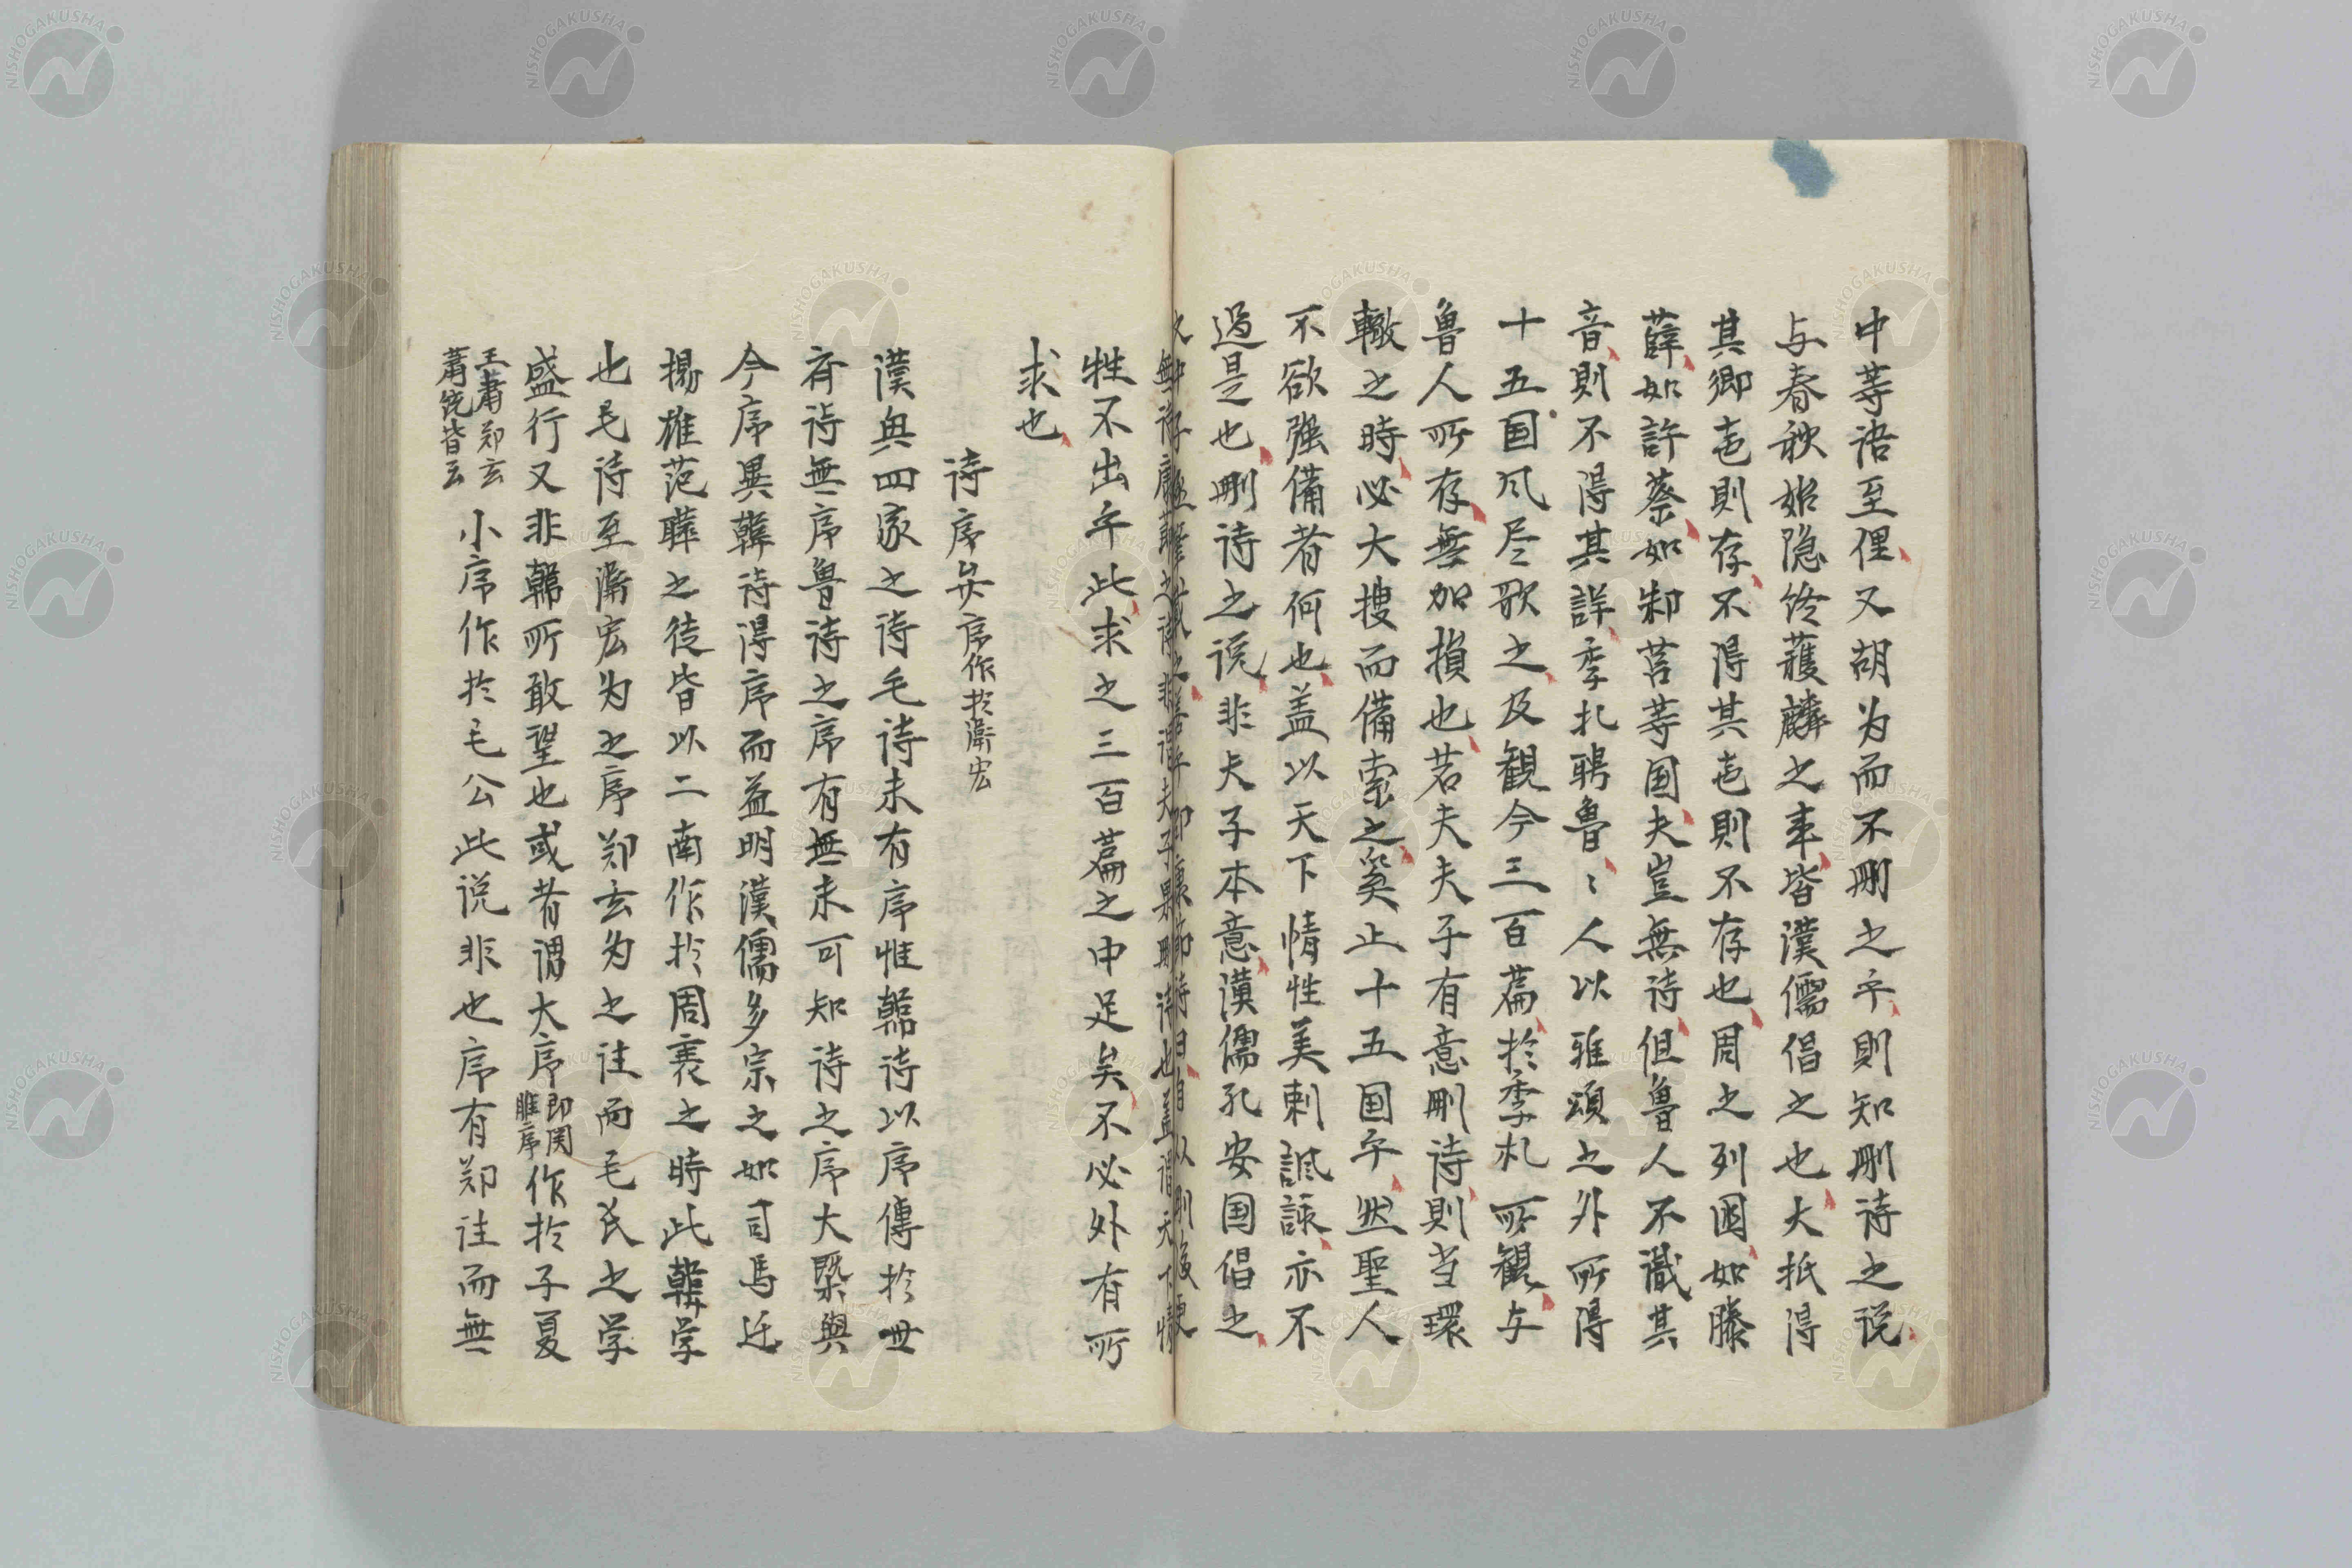 中等语至俚又胡为而不刪之乎則知刪诗之说
与春秋始隐终蒦麟之事皆漢儒倡之也大抵得
其鄉邑則存不得其邑則不存也周之列國如滕
薛如許蔡如邾莒等国夫豈無诗但魯人不識其
音則不得其詳季札聘魯〻人以雅頌之外所得
十五国风尽歌之及観今三百篇於季札所観与
魯人所存無加損也若夫夫子有意刪诗則当環
轍之時必大搜而備索之奚止十五国乎然聖人
不欲强備者何也盖以天下情性美刺諷諌亦不
過是也刪诗之说非夫子本意漢儒孔安国倡之
性不出乎此求之三百篇之中足矣不必外有所
求也
诗序矣序作於衛宏
漢興四家之诗毛诗未有序惟韓诗以序傳於世
斉诗無序魯诗之序有無未可知诗之序大槩與
今序異韓诗得序而益明漢儒多宗之如司馬迁
揚雄范曄之徒皆以二南作於周衰之時此韓学
也毛诗至衛宏为之序郑玄为之註而毛氏之学
盛行又非韓所敢望也或者谓大序即関雎序作於子夏
王肅郑玄蕭统皆云小序作於毛公此说非也序有郑註而無